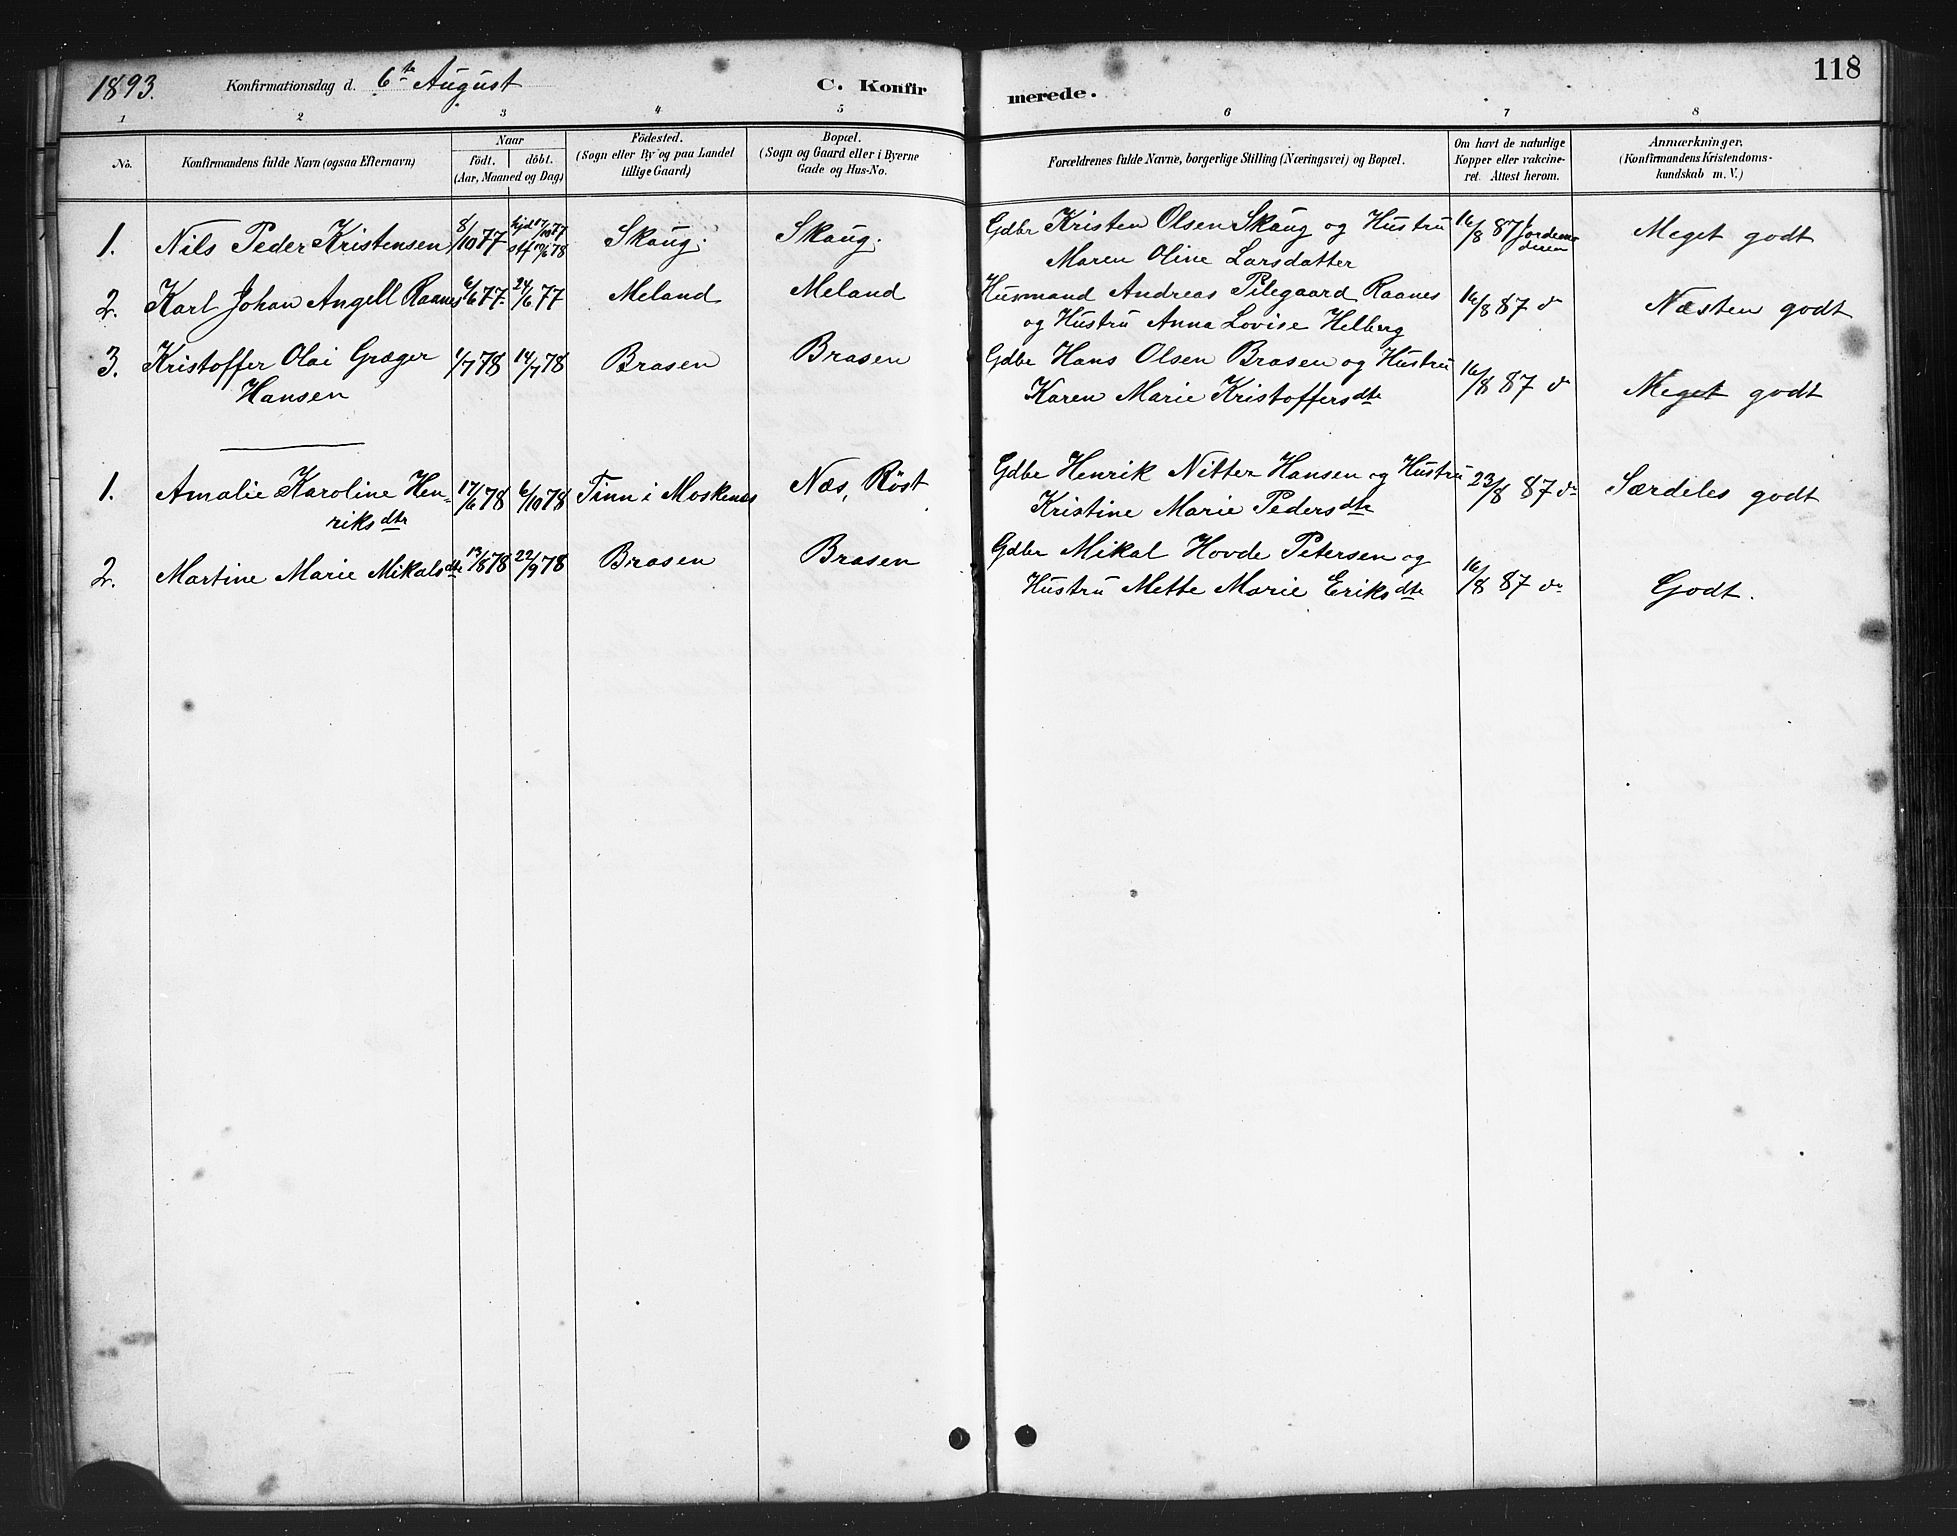 1893. Konfirmationsdag d. 6te August C. Konfirmerede. 118
1 2 3 4 5 6 7 8
No. Konfirmandens fulde Navn (ogsaa Efternavn) Naar födt. döbt. (Aar, Maaned og Dag) Födested. (Sogn eller By og paa Landet tillige Gaard) Bopæl. (Sogn og Gaard eller i Byerne Gade og Hus-No. Forældrenes fulde Navne, borgerlige Stilling (Næringsvei) og Bopæl. Om havt de naturlige Kopper eller vakcineret. Attest herom. Anmærkninger. (Konfirmandens Kristendomskundskab m. V.)
1. Nils Peder Kristensen 8/10 77 hjd 17/10 77 Skaug. Skaug. Gdbr Kristen Olsen Skaug og Hustru 16/8 87 Meget godt
stf 10/6 78 Maren Oline Larsdatter
2. Karl Johan Angell Raanes 6/6 77 24/6 77 Meland Meland Husmand Andreas Pilegaard Raanes 16/8 87 do Næsten godt
og Hustru Anna Lovise Helberg
3. Kristoffer Olai Græger 1/7 78 14/7 78 Brasen Brasen Gdbr Hans Olsen Brasen og Hustru 16/8 87 do Meget godt
Hansen Karen Marie Kristoffersdtr
1. Amalie Karoline Hen- 17/6 78 6/10 78 Tinn i Moskenes Næs, Röst Gdbr Henrik Nitter Hansen og Hustru 23/8 87 do Særdeles godt
riksdtr Kristine Marie Pedersdtr
2. Martine Marie Mikalsdtr 13/8 78 22/9 78 Brasen Brasen Gdbr Mikal Hovde Petersen og 16/8 87 do Godt.
Hustru Mette Marie Eriksdtr